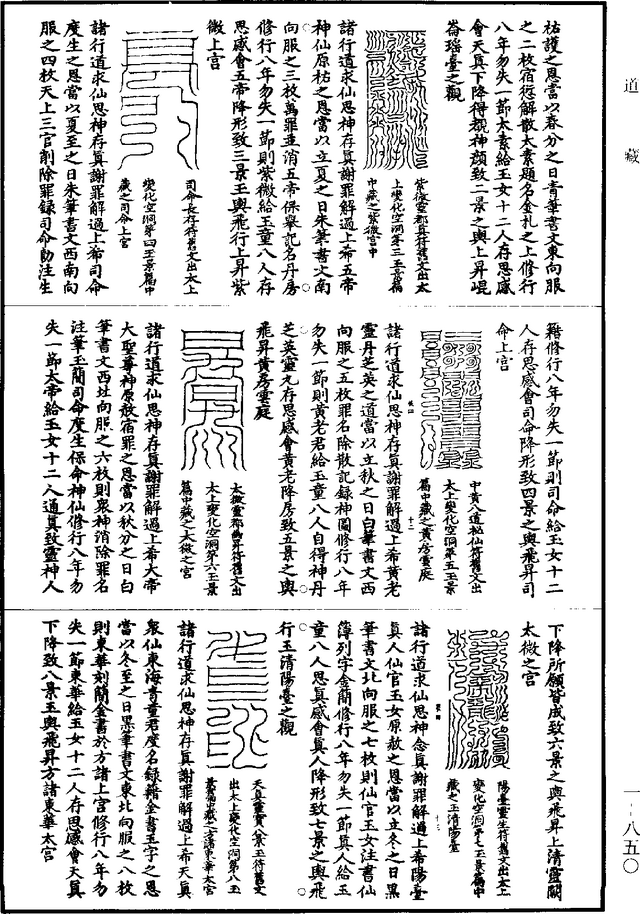 道藏
一·八五〇
祐護之恩當以春分之日青筆書文東向服
之二枚宿愆解散太素題名金札之上修行
八年勿失一節太素給玉女十二人存思感
會天真下降得覩神顏致二景之輿上昇崐
崙瑶臺之觀
紫微靈都真符舊文出太
上變化空洞第三玉景篇
中藏之紫微宮中
諸行道求仙思神存真謝罪解過上希五帝
神仙原祐之恩當以立夏之日朱筆書文南
向服之三枚萬罪並消五帝保舉記名丹房
修行八年勿失一節則紫微給玉童八人存
思感會五帝降形致三景玉輿飛行上昇紫
微上宮
司命長存符舊文出太上
變化空洞第四玉景篇中
藏之司命上宮
諸行道求仙思神存真謝罪解過上希司命
度生之恩當以夏至之日朱筆書文西南向
服之四枚天上三官削除罪録司命勒注生
籍修行八年勿失一節則司命給玉女十二
人存思感會司命降形致四景之輿飛昇司
命上宮
中黄八道祕仙符舊文出
太上變化空洞第五玉景
篇中藏之黄房靈庭
諸行道求仙思神存真謝罪解過上希黄老
靈丹芝英之道當以立秋之日白筆書文西
向服之五枚罪名除散記録神圖修行八年
勿失一節則黄老君給玉童八人自得神丹
芝英靈九存思感會黄老降房致五景之輿
飛昇黄房靈庭
太微靈都飛昇符舊文出
太上變化空洞第六玉景
篇中藏之太微之宮
諸行道求仙思神存真謝罪解過上希大帝
大聖尊神原赦宿罪之恩當以秋分之日白
筆書文西北向服之六枚則衆神消除罪名
注筆玉簡司命度生保命神仙修行八年勿
失一節太帝給玉女十二人道真致靈神人
下降所願皆成致六景之輿飛昇上清靈闕
太微之宮
陽臺靈生符舊文出太上
變化空洞第七玉景篇中
藏之玉清陽臺
諸行道求仙思神念真謝罪解過上希陽臺
真人仙官玉女原赦之恩當以立冬之日黑
筆書文北向服之七枚則仙官玉女注書仙
簿列字金簡修行八年勿失一節真人給玉
童八人思真感會真人降形致七景之輿飛
行玉清陽臺之觀
天真靈寶八景玉符舊文
出太上變化空洞第八玉
景篇中藏之方諸東華太宮
諸行道求仙思神存真謝罪解過上希天真
衆仙東海青童君度名録籍金書玉字之恩
當以冬至之日黑筆書文東北向服之八枚
則東華刻簡金書於方諸上宮修行八年勿
失一節東華給玉女十二人存思感會天真
下降致八景玉輿飛昇方諸東華太宮